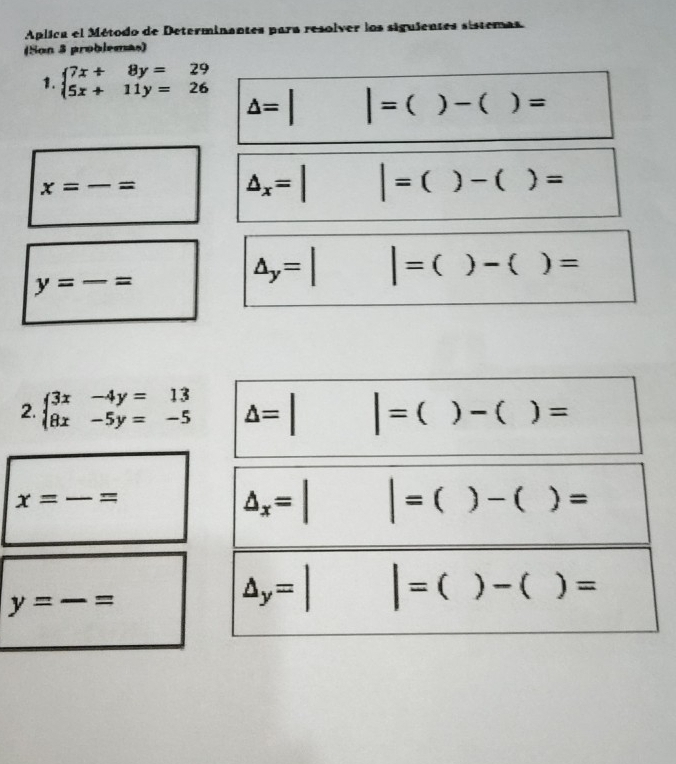 Aplica el Método de Determinantes para resolver los siguientes sistemas.
(Son 3 problemas)
1. {7x + 8y = 29
5x + 11y = 26
Δ= | | = ( ) − ( ) =
x = — =
Δx= | | = ( ) − ( ) =
y = — =
Δy= | | = ( ) − ( ) =
2. {3x −4y = 13
8x −5y = −5
Δ= | | = ( ) − ( ) =
x = — =
Δx= | | = ( ) − ( ) =
y = — =
Δy= | | = ( ) − ( ) =